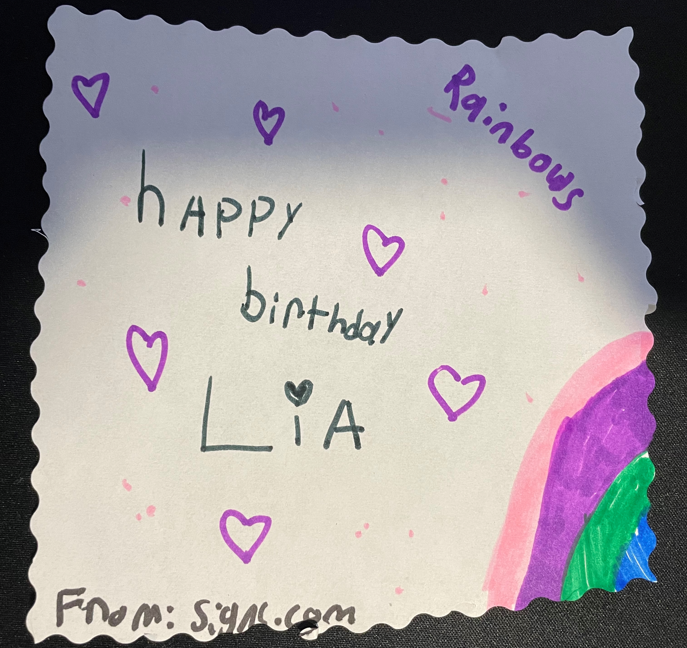 Rainbows
hAPPY
birthday
LiA
From: